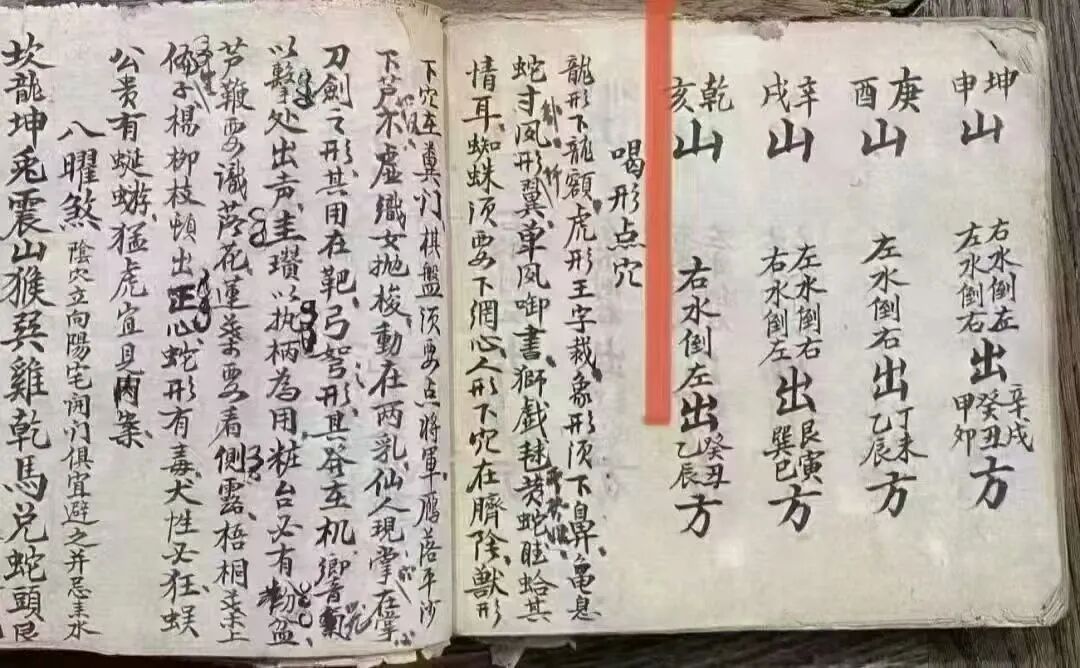 坤申山 右水倒左 左水倒右 出 辛戌 癸丑 甲卯 方
庚酉山 左水倒右 出 丁未 乙辰 方
辛戌山 左水倒右 右水倒左 出 艮寅 巽巳 方
乾亥山 右水倒左 出 癸丑 乙辰 方
喝形点穴
龍形下龍額虎形王字裁象形須下鼻亀息
蛇寸凤形翼单凤啣書獅戲毬 蛇 蛤其
情耳蜘蛛須要下網心人形下穴在臍陰獸形
下穴在糞门棋盤須要点將軍雁落平沙
下芦 虚織女抛梭動在两乳仙人現掌在掌
刀劍之形其用在靶弓弩形其發在机
以擊处出声圭瓚以执柄為用粧台必有粉盆
芦鞭要識芦花蓮葉要看側露梧桐 上
楊柳枝頓出正心蛇形有毒犬性必狂蜈
公贵有蜒蝣猛虎宜見肉案
八曜煞 陰穴立向陽宅闹门俱宜避之并忌来水
坎龍坤兎震山猴巽雞乾馬兑蛇頭艮